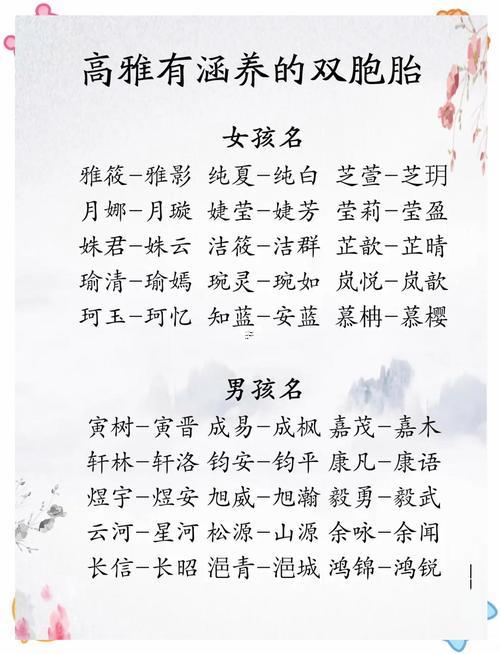 高雅有涵养的双胞胎
女孩名
雅筱-雅影 纯夏-纯白 芝萱-芝玥
月娜-月璇 婕莹-婕芳 莹莉-莹盈
姝君-姝云 洁筱-洁群 芷歆-芷晴
瑜清-瑜嫣 琬灵-琬如 岚悦-岚歆
珂玉-珂忆 知蓝-安蓝 慕柟-慕樱
男孩名
寅树-寅晋 成易-成枫 嘉茂-嘉木
轩林-轩洛 钧安-钧平 康凡-康语
煜宇-煜安 旭威-旭瀚 毅勇-毅武
云河-星河 松源-山源 余咏-余闻
长信-长昭 浥青-浥城 鸿锦-鸿锐